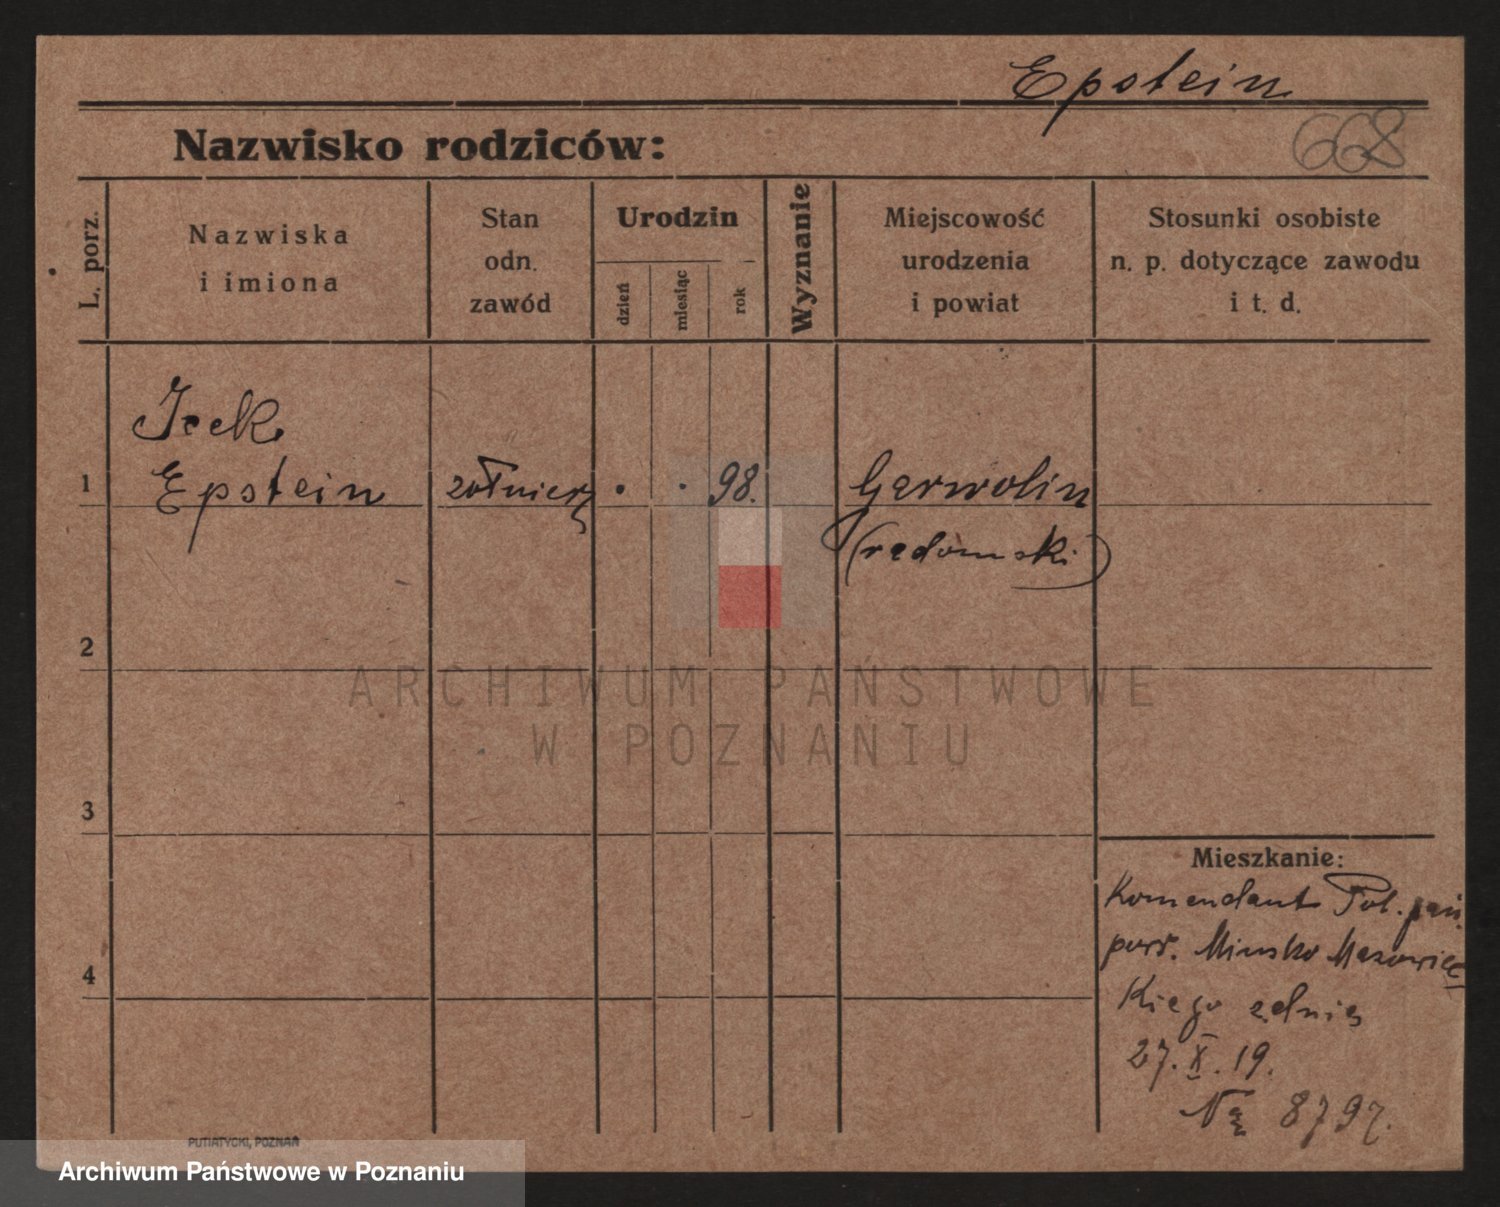 Epstein
668
Nazwisko rodziców:
L. porz.
Nazwiska
i imiona
Stan
odn.
zawód
Urodzin
dzień
miesiąc
rok
Wyznanie
Miejscowość
urodzenia
i powiat
Stosunki osobiste
n. p. dotyczące zawodu
i t. d.
Icek
1 Epstein żołnierz . . 98. Garwolin
(radomski)
2
3
4
Mieszkanie:
Komendant Pol. pań.
pow. Minsko Mazowiec
kiego z dnia
27. X. 19.
8797.
PUTIATYCKI, POZNAŃ
ARCHIWUM PAŃSTWOWE
W POZNANIU
Archiwum Państwowe w Poznaniu